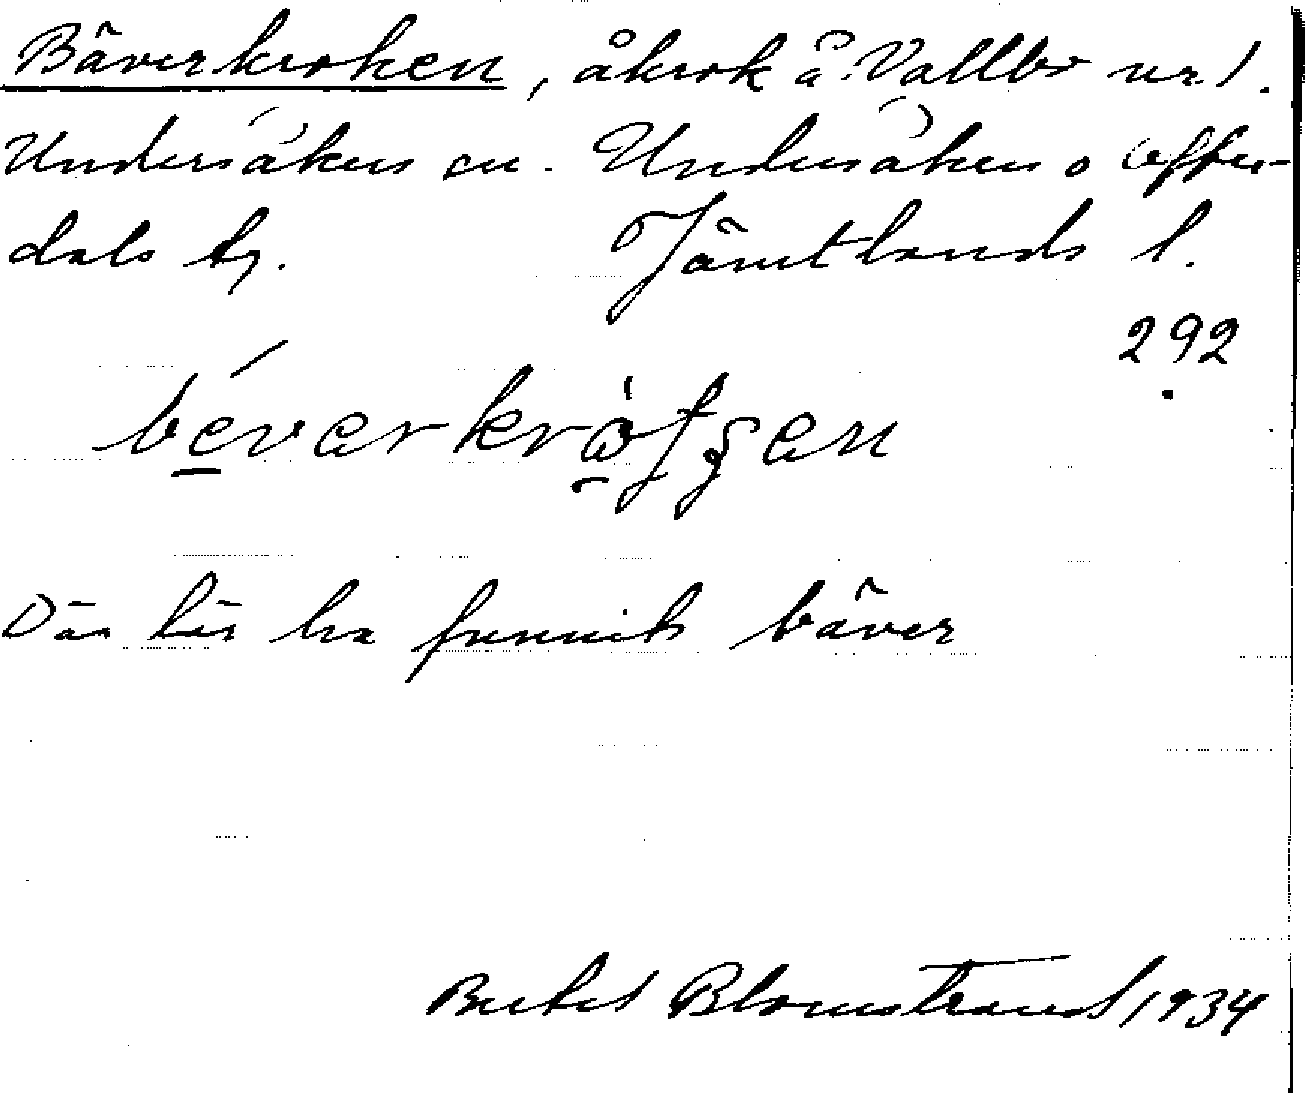 Bäverkroken, åkrok å Vallbo nr 1.
Undersåkers sn. Undersåkers o Offer-
dals tg. Jämtlands l.
292
Där lär ha funnits bäver
Bertil Blomstrand 1934